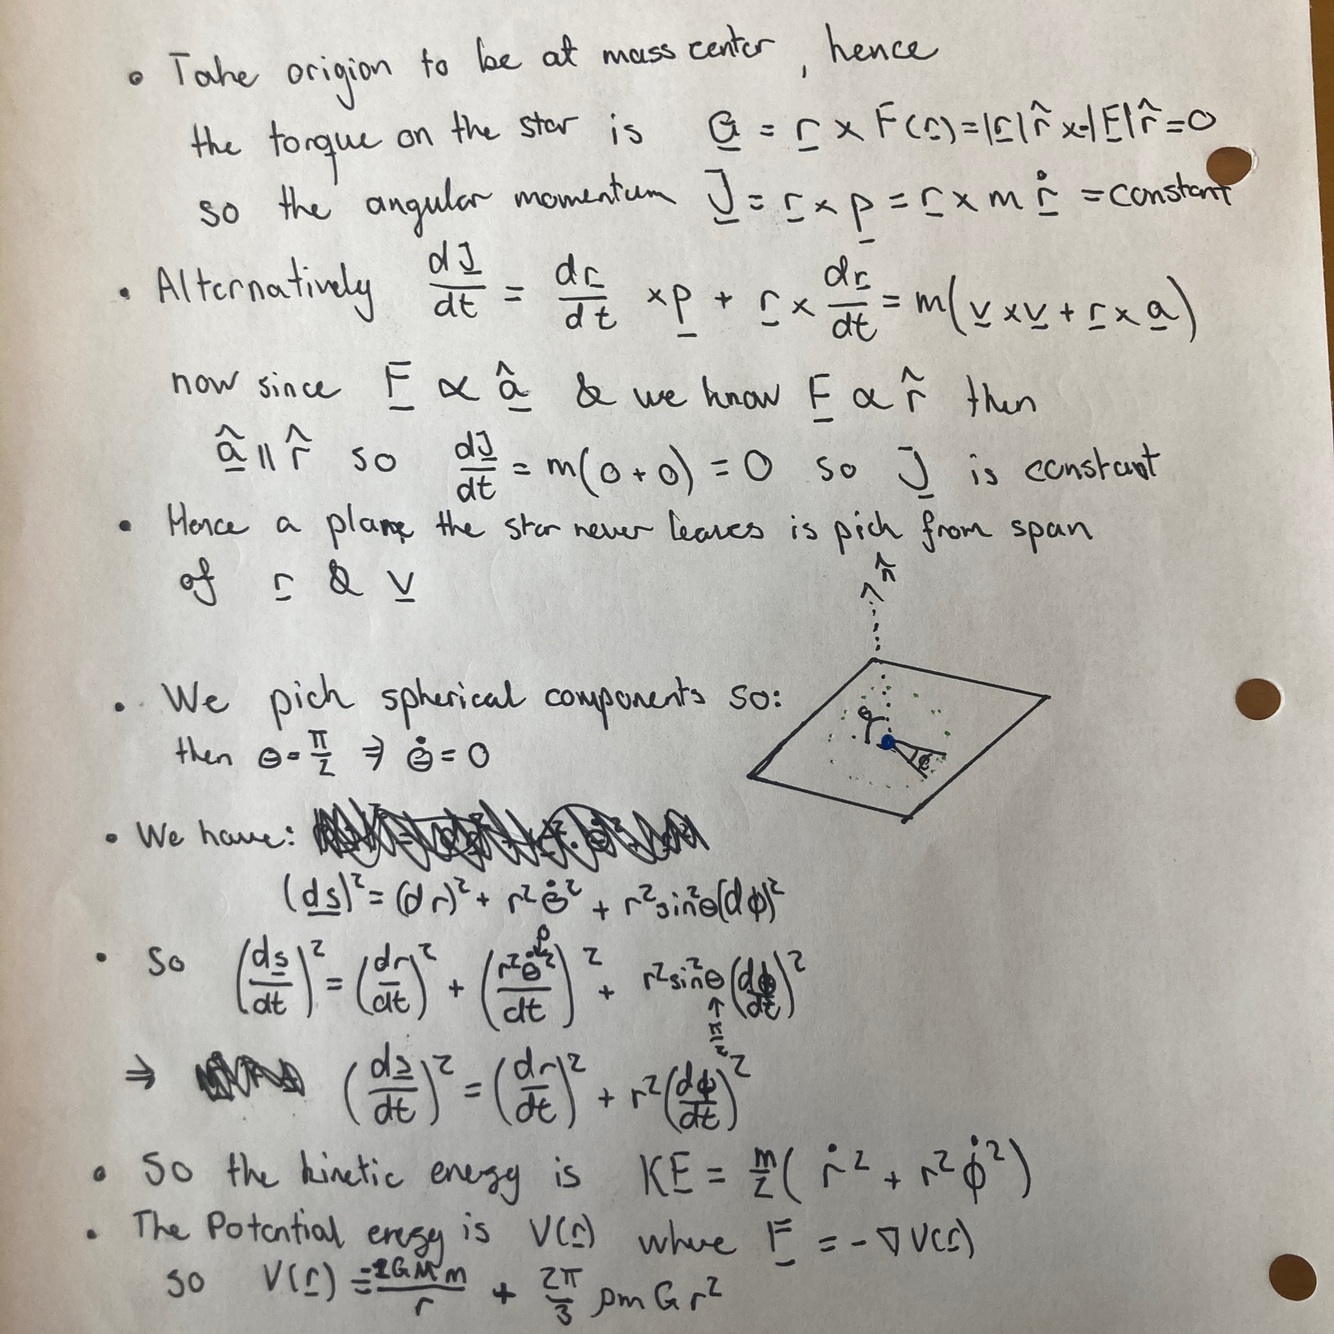 • Take origion to be at mass center, hence
the torque on the star is G = r × F(r) = |r| r̂ × -|F| r̂ = 0
so the angular momentum J = r × p = r × m ṙ = constant
• Alternatively dJ/dt = dr/dt × p + r × dr/dt = m(v × v + r × a)
now since F ∝ â & we know F ∝ r̂ then
â ∥ r̂ so dJ/dt = m(0 + 0) = 0 so J is constant
• Hence a plane the star never leaves is pick from span
of r & v
n̂
• We pick spherical components so:
then θ = π/2 ⇒ θ̇ = 0
θ
ϕ
• We have:
(ds)² = (dr)² + r² θ̇² + r² sin²θ (dϕ)²
• So (ds/dt)² = (dr/dt)² + (r² θ̇²/dt)² + r² sin²θ (dϕ/dt)²
0
π/2
⇒ (ds/dt)² = (dr/dt)² + r² (dϕ/dt)²
• So the kinetic energy is KE = m/2 ( ṙ² + r² ϕ̇² )
• The Potential eregy is V(r) where F = -∇V(r)
so V(r) = -2GMm/r + 2π/3 ρmGr²